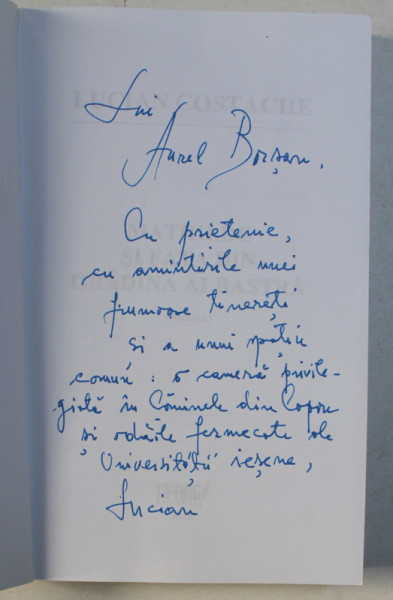 LUCIAN COSTACHE
Lui
Aurel Borșan.
Cu prietenie,
cu amintirile unei
frumoase tinereți
și a unui spațiu
comun: o cameră privile-
giată în Căminele din Copou
și odăile fermecate ale
Universității ieșene,
Lucian
GRĂDINA ALBASTRĂ